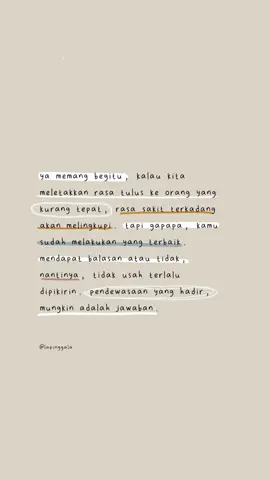 ya memang begitu, kalau kita
meletakkan rasa tulus ke orang yang
kurang tepat, rasa sakit terkadang
akan melingkupi. tapi gapapa, kamu
sudah melakukan yang terbaik.
mendapat balasan atau tidak,
nantinya, tidak usah terlalu
dipikirin. pendewasaan yang hadir,
mungkin adalah jawaban.